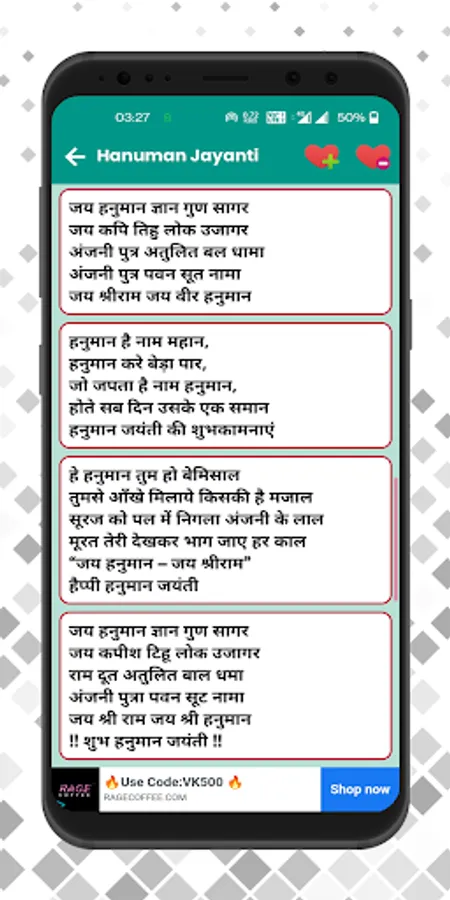 03:27
50%
Hanuman Jayanti
जय हनुमान ज्ञान गुण सागर
जय कपि तिहु लोक उजागर
अंजनी पुत्र अतुलित बल धामा
अंजनी पुत्र पवन सूत नामा
जय श्रीराम जय वीर हनुमान
हनुमान है नाम महान,
हनुमान करे बेड़ा पार,
जो जपता है नाम हनुमान,
होते सब दिन उसके एक समान
हनुमान जयंती की शुभकामनाएं
हे हनुमान तुम हो बेमिसाल
तुमसे आँखे मिलाये किसकी है मजाल
सूरज को पल में निगला अंजनी के लाल
मूरत तेरी देखकर भाग जाए हर काल
“जय हनुमान – जय श्रीराम”
हैप्पी हनुमान जयंती
जय हनुमान ज्ञान गुण सागर
जय कपीश टिहू लोक उजागर
राम दूत अतुलित बाल धमा
अंजनी पुत्रा पवन सूट नामा
जय श्री राम जय श्री हनुमान
!! शुभ हनुमान जयंती !!
RAGE COFFEE
🔥Use Code:VK500 🔥
RAGECOFFEE.COM
Shop now